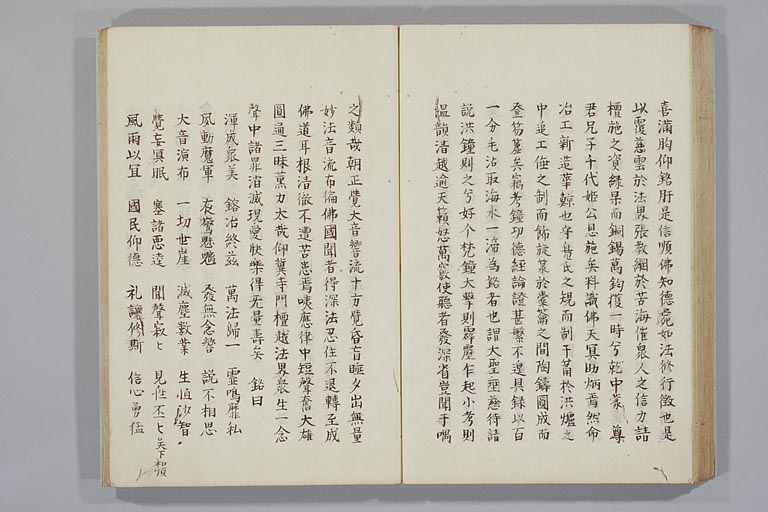 喜滿胸仰銘肝是信順佛知德覺如法修行徴也是
以覆慈雲於法界張教網於苦海催衆人之信力諸
檀施之資緣果而銅錫萬鈞復一時兮乾中蒙尊
君兄子千代姫公恩施矣料識佛天冥助炳焉然命
冶工新造華鯨也守鳧氏之規而制千萬於洪爐之
中追工倕之制而餙旋䖝於橐籥之間陶鑄圓成而
登笱簴矣竊考鐘功德經論證甚繁不遑具録以百
一分毛沾取海水一滴為銘者也謂大聖垂慈待諸
說洪鐘則之兮好个梵鐘大擊則霹靂乍起小考則
温韻清越逾天籟怒萬竅使聽者發深省豈聞于喁
之類哉朝正覺大音響流十方覺昏盲睡夕出無量
妙法音流布徧佛國聞者得深法忍住不退轉至成
佛道耳根清徹不遭苦患焉咦應律中短聲奮大雄
圓通三昧薰力大哉仰冀寺門檀越法界衆生一念
聲中諸罪消滅現愛快樂得无量壽矣 銘曰
渾成衆美 鎔冶終兹 萬法歸一 靈鳴靡私
風動魔軍 夜驚魑魅 發無念響 説不相思
大音演布 一切世崖 滅塵數業 生恒沙智
覺妄冥眠 塞諸悪逵 聞聲寂ヒ 見性丕ヒ 天下和順
風雨以宜 國民仰德 礼讓修斯 信心勇猛